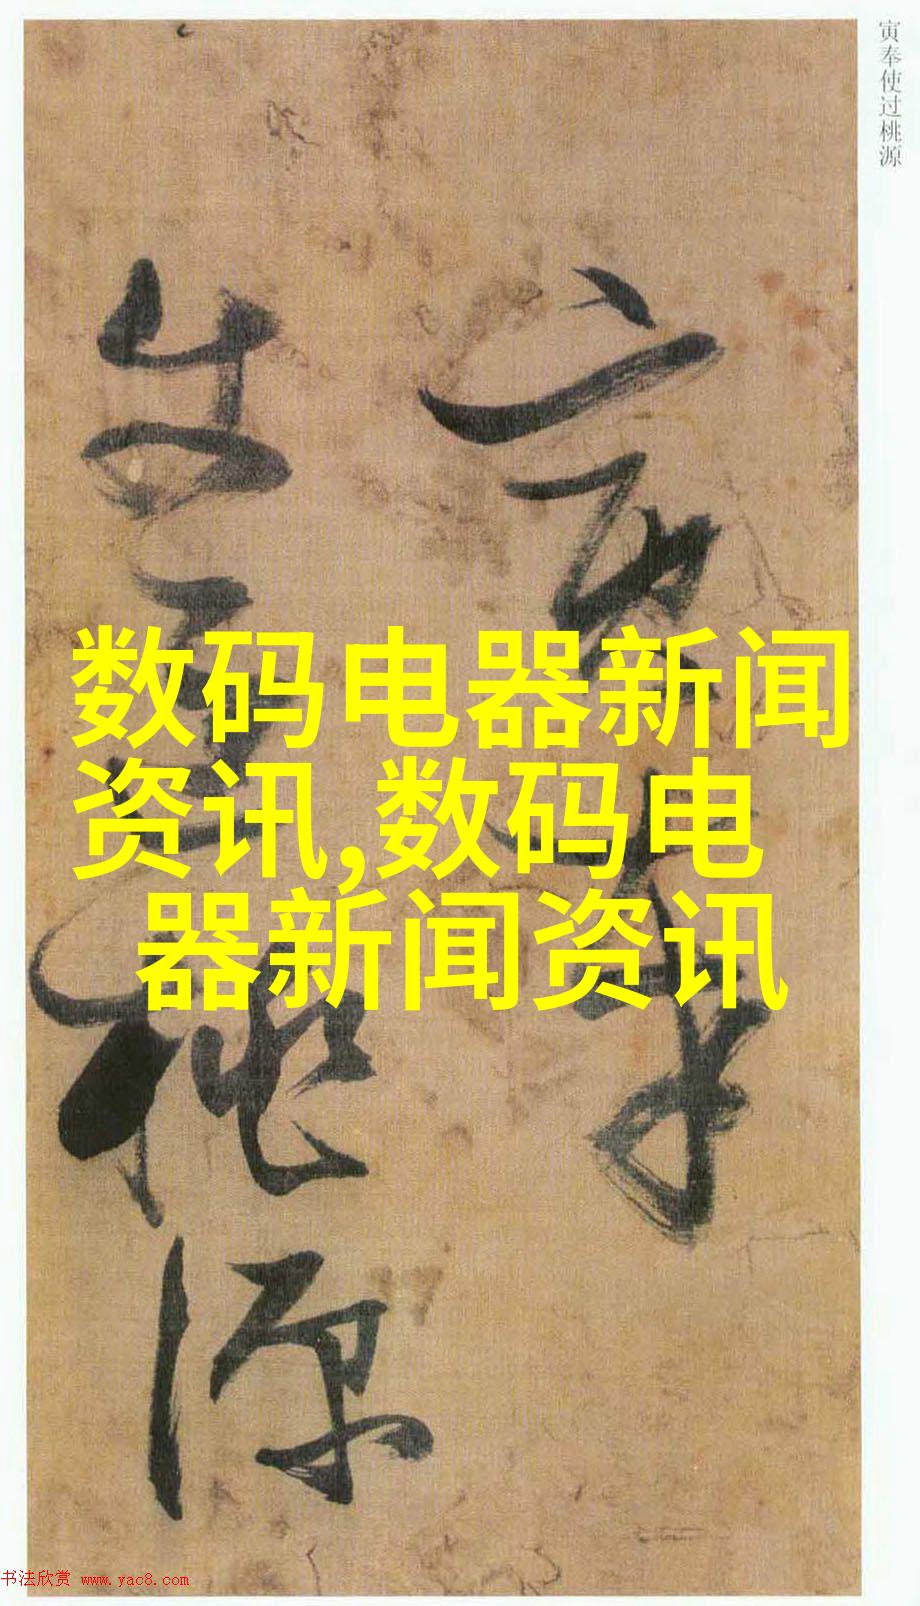 寅奉使过桃源
寅奉
使过桃源
数码电器新闻
资讯,数码电
器新闻资讯
书法欣赏 www.yac8.com